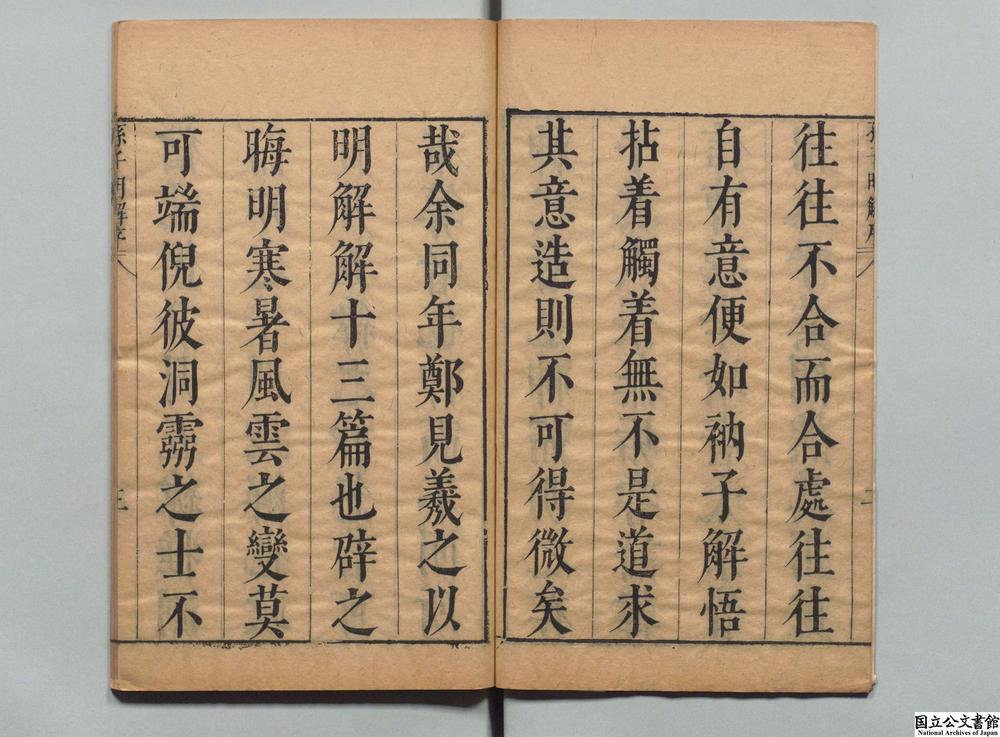 往往不合而合處往往
自有意便如衲子解悟
拈着觸着無不是道求
其意造則不可得微矣
哉余同年鄭見羲之以
明解解十三篇也辟之
晦明寒暑風雲之變莫
可端倪彼洞霛之士不
孫子明解序
三
国立公文書館
National Archives of Japan